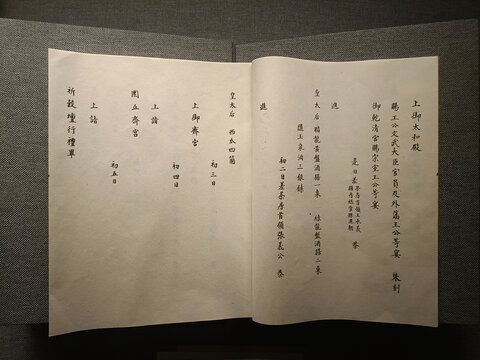 上御太和殿
賜王公文武大臣官員及外藩王公等宴
御乾清宮賜宗室王公等宴
是日差茶房首領王永義 恭
進
皇太后 龍黃盤酒膳一桌 綠龍盤酒膳二桌
隨玉泉酒三銀
初二日差茶房首領張義公 恭
進
皇太后 西瓜四箇
初三日
上御齋宮
初四日
上詣
圜丘齋宮
初五日
上詣
祈穀壇行禮畢